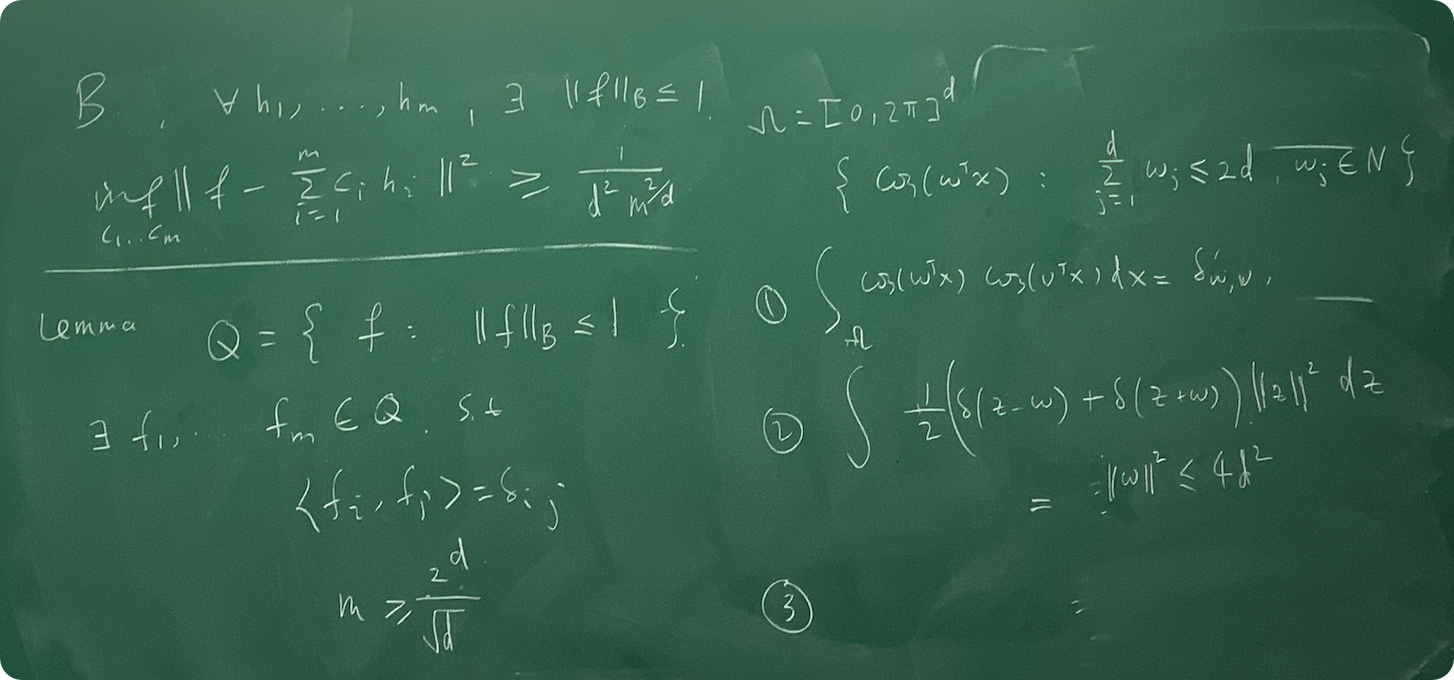 B , ∀ h₁, ..., hₘ , ∃ ||f||_B ≤ 1
inf_{c₁..cₘ} || f - Σ_{i=1}^{m} cᵢ hᵢ ||² ≥ 1/(d² m^{2/d})
Lemma Q = { f : ||f||_B ≤ 1 }.
∃ f₁, ... fₘ ∈ Q . s.t
⟨fᵢ, fⱼ⟩ = δᵢⱼ
m ≥ 2^d/√d
Ω = [0, 2π]^d
{ cos(ω^T x) : Σ_{j=1}^{d} ωⱼ ≤ 2d , ωⱼ ∈ N }
① ∫_Ω cos(ω^T x) cos(ν^T x) dx = δ_{ω,ν} .
② ∫ 1/2 (δ(z-ω) + δ(z+ω)) ||z||² dz
= = ||ω||² ≤ 4d²
③ =